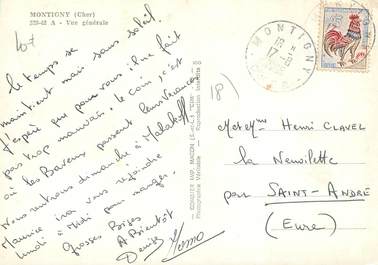 MONTIGNY (Cher)
239-42 A - Vue générale
Le temps se
maintient mais sans soleil.
J'espère que pour vous il ne fait
pas trop mauvais. Le coin c'est
où les Barens passent leurs vacances
Nous rentrons dimanche à Malakoff
Maurice ira vous rejoindre
lundi à Midi pour manger.
Grosses Bises
A Bientôt
Denise Momo
COMBIER IMP. MACON
Photographie Véritable - Reproduction Interdite
MONTIGNY
18 H
17-8
CHER
18)
Met Mme Henri CLAVEL
la Neuvilette
par SAINT-ANDRÉ
(Eure)